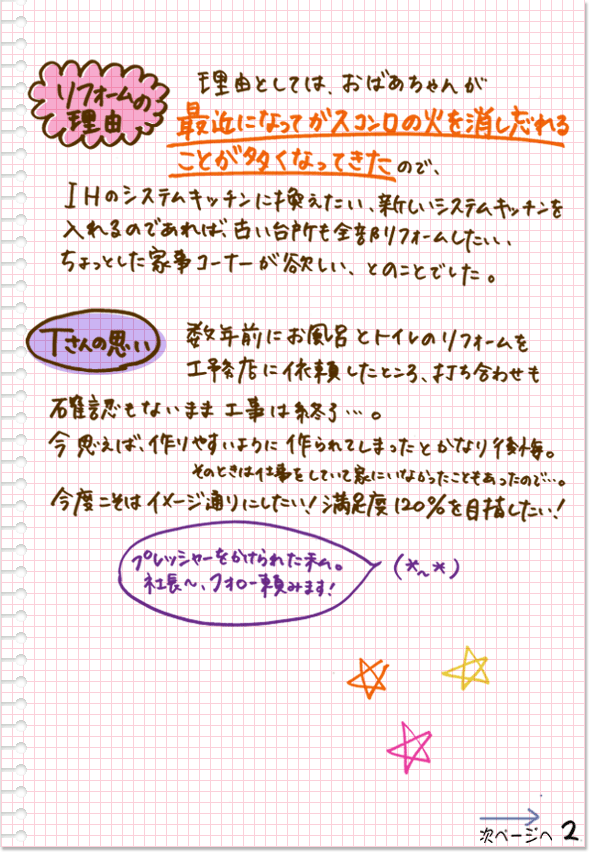 リフォームの
理由
理由としては、おばあちゃんが
最近になってガスコンロの火を消し忘れる
ことが多くなってきたので、
IHのシステムキッチンに換えたい、新しいシステムキッチンを
入れるのであれば、古い台所も全部リフォームしたい、
ちょっとした家事コーナーが欲しい、とのことでした。
Tさんの思い
数年前にお風呂とトイレのリフォームを
工務店に依頼したところ、打ち合わせも
確認もないまま工事は終了…。
今思えば、作りやすいように作られてしまったとかなり後悔。
そのときは仕事をしていて家にいなかったこともあったので…。
今度こそはイメージ通りにしたい!満足度120%を目指したい!
プレッシャーをかけられた私。
社長~、フォロー頼みます!
(*~*)
次ページへ 2